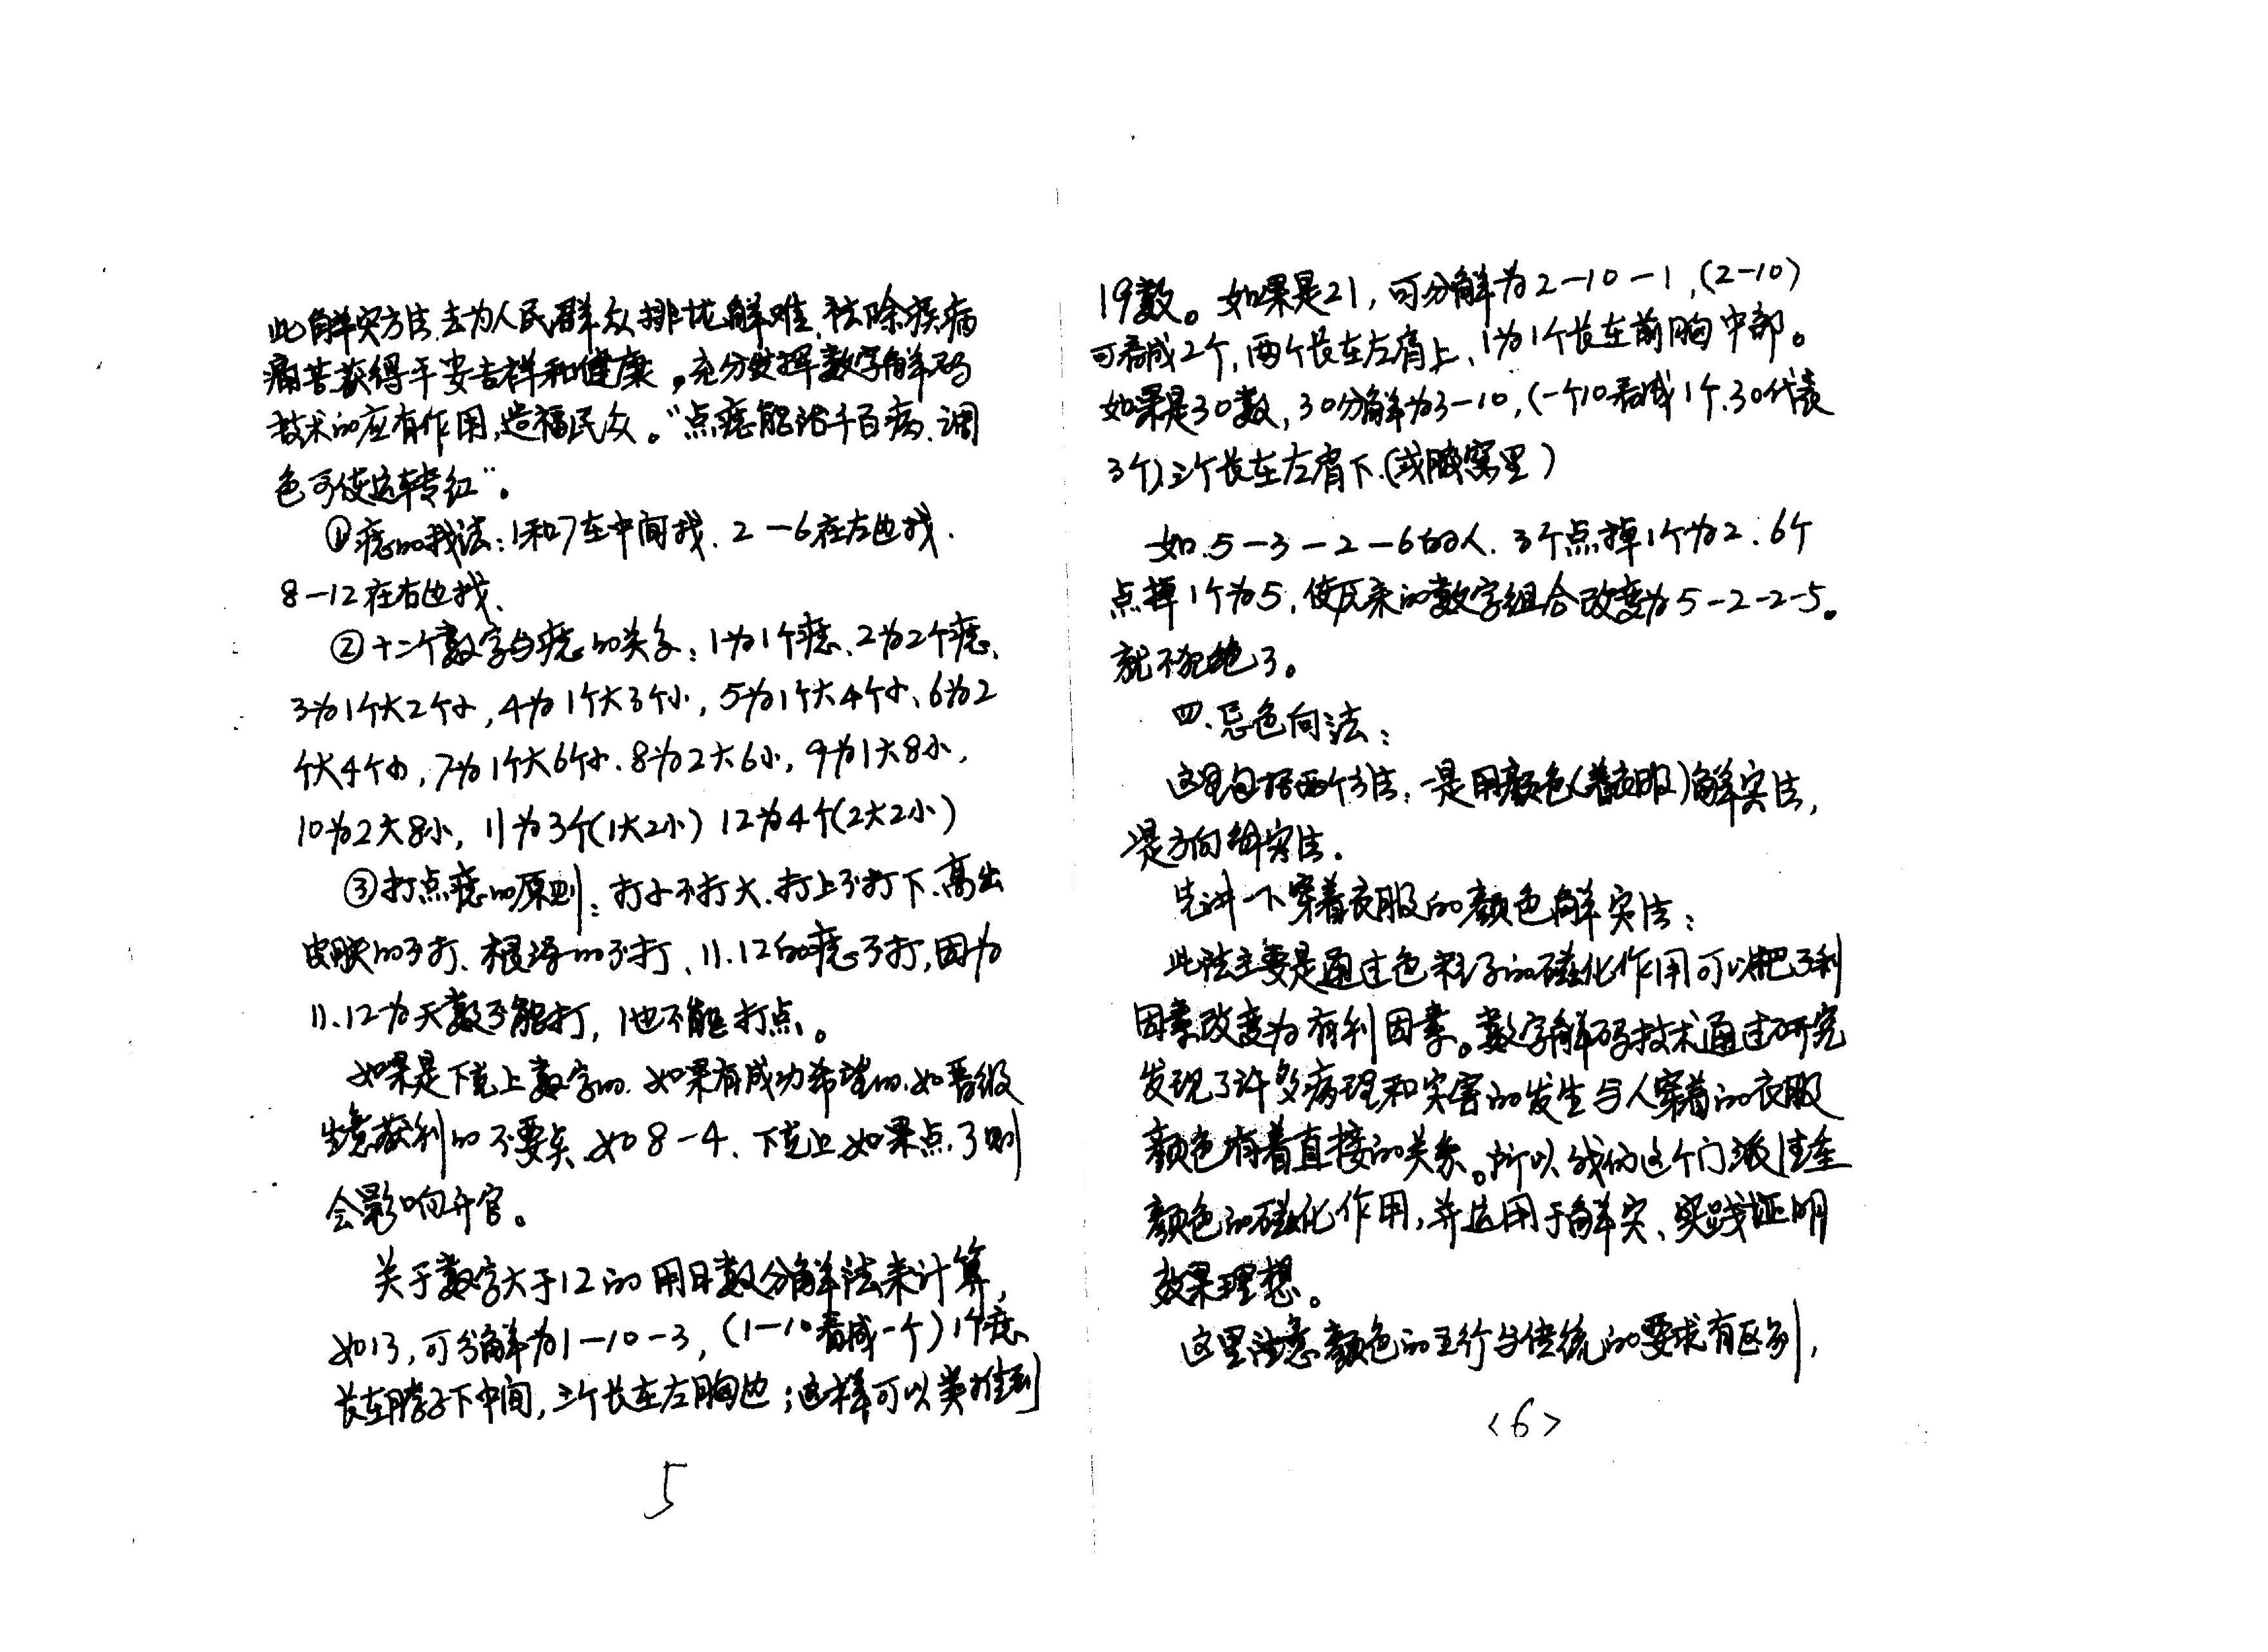 此解灾方法,去为人民群众排忧解难,祛除疾病
痛苦获得平安吉祥和健康,充分发挥数字解码
技术的应有作用,造福民众。“点痣能治千百病、调
色可使运转红”。
①痣的找法:1和7在中间找、2-6在左边找、
8-12在右边找、
②十二个数字与痣的关系:1为1个痣、2为2个痣、
3为1个大2个小,4为1个大3个小,5为1个大4个小、6为2
个大4个小,7为1个大6个小、8为2大6小,9为1大8小,
10为2大8小,11为3个(1大2小)12为4个(2大2小)
③打点痣的原则:打小不打大、打上不打下、高出
皮肤的不打、根深的不打、11.12的痣不打,因为
11、12为天数不能打,1也不能打点。
如果是下克上数字的、如果有成功希望的、如晋级
生意获利的不要点、如8-4、下克上、如果点了则
会影响升官。
关于数字大于12的用日数分解法来计算,
如13,可分解为1-10-3,(1-10看成一个)1个痣、
长在脖子下中间,三个长在左胸边;这样可以类推到
5
19数。如果是21,可分解为2-10-1,(2-10)
可看成2个,两个长在左肩上、1为1个长在前胸中部。
如果是30数,30分解为3-10,(一个10看成1个、30代表
3个)三个长在左肩下(或腋窝里)
如.5-3-2-6的人、3个点掉1个为2、6个
点掉1个为5,使原来的数字组合改变为5-2-2-5。
就不犯绝了。
四、忌色向法:
这里包括两个方法:一是用颜色(着衣服)解灾法,
二是方向解灾法.
先讲一下穿着衣服的颜色解灾法:
此法主要是通过色粒子的磁化作用可以把不利
因素改变为有利因素。数字解码技术通过研究
发现了许多病理和灾害的发生与人穿着的衣服
颜色有着直接的关系。所以我们这个门派注重
颜色的磁化作用,并运用于解灾、实践证明
效果理想。
这里注意颜色的五行与传统的要求有区别,
<6>